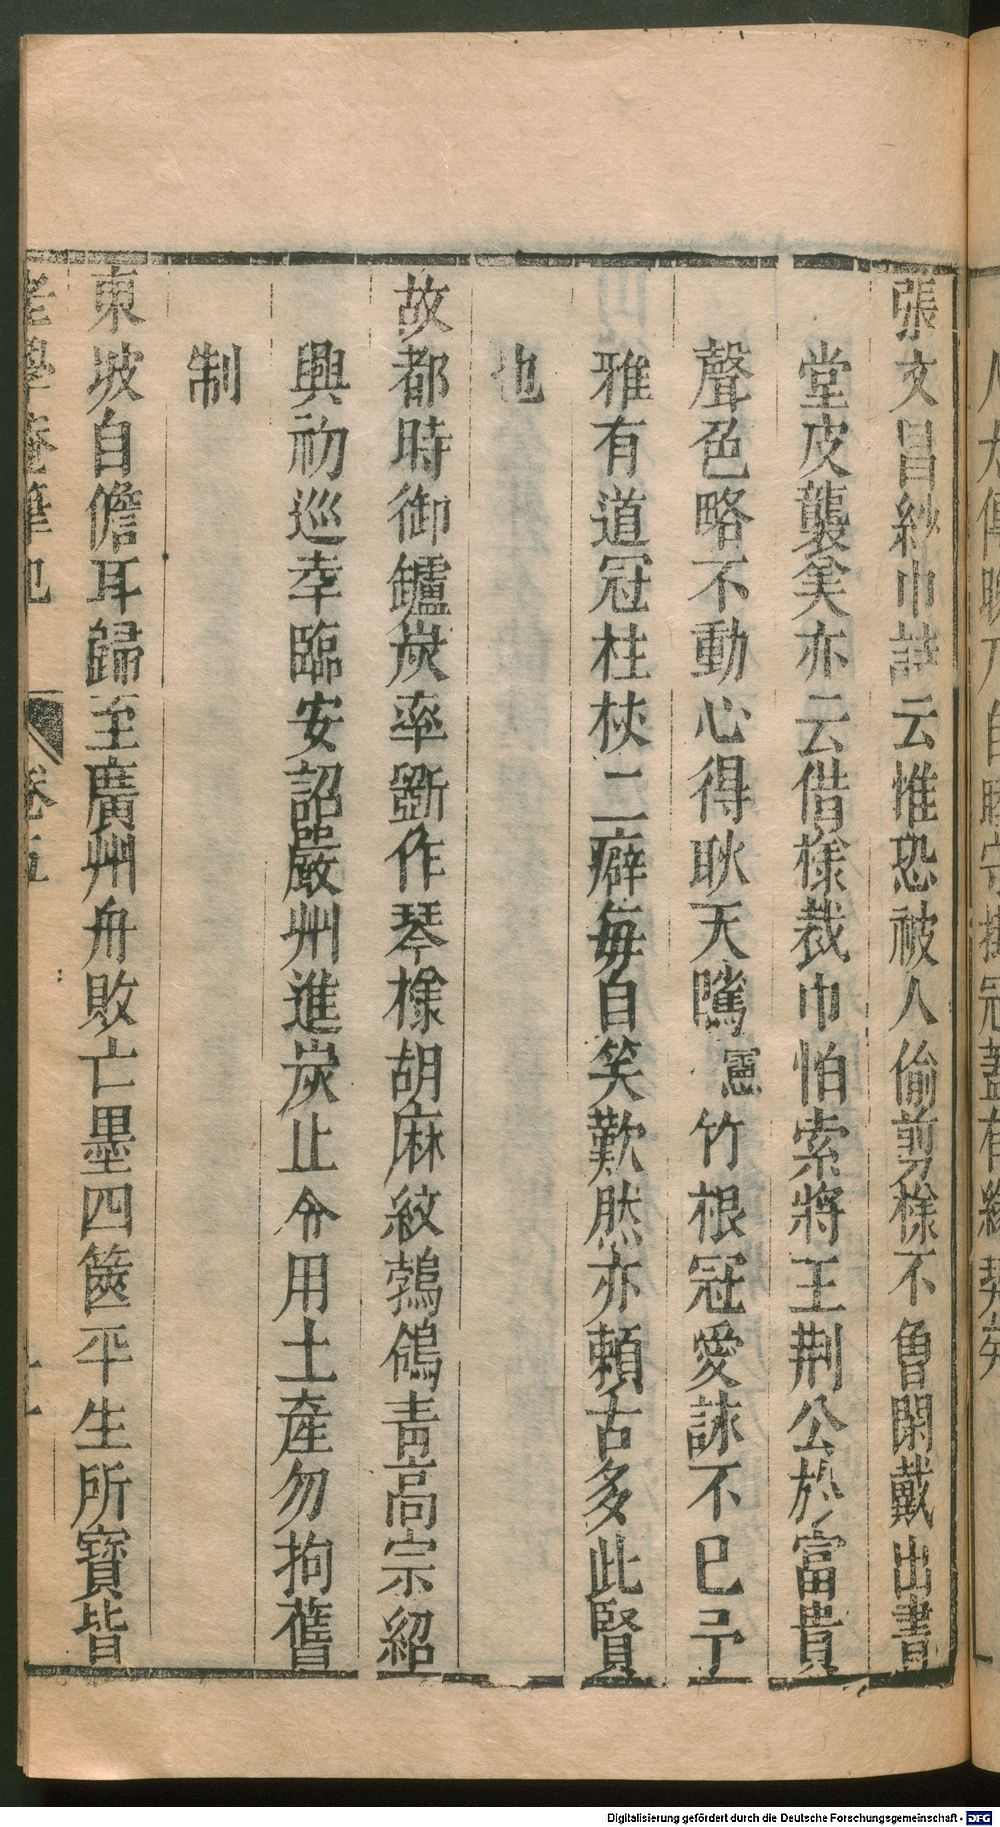 張文昌紗巾詩云惟恐被人偷剪樣不曾閑戴出書
堂皮襲美亦云借樣裁巾怕索將王荊公於富貴
聲色略不動心得耿天隲憲竹根冠愛詠不已予
雅有道冠柱杖二癖每自笑歎然亦頼古多此賢
也
故都時御鑪炭率斵作琴樣胡麻紋鵓鴿青高宗紹
興初巡幸臨安詔嚴州進炭止令用土產勿拘舊
制
東坡自儋耳歸至廣州舟敗亡墨四篋平生所寶皆
老學庵筆記 卷五
Digitalisierung gefördert durch die Deutsche Forschungsgemeinschaft - DFG